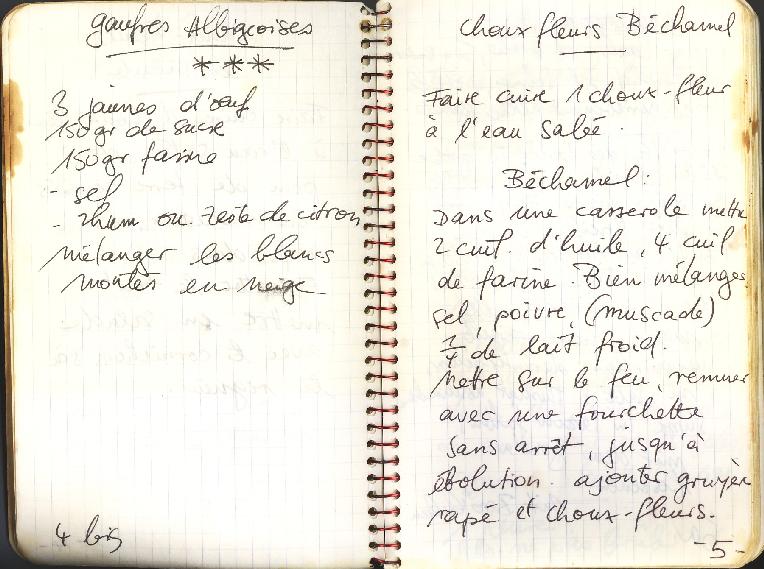 gaufres Albigeoises
***
3 jaunes d'oeuf
150gr de sucre
150gr farine
- sel
- rhum ou zeste de citron
mélanger les blancs
montés en neige
4 bis
choux fleurs Béchamel
Faire cuire 1 choux-fleur
à l'eau salée.
Béchamel:
Dans une casserole mettre
2 cuil. d'huile, 4 cuil
de farine. Bien mélanger
sel, poivre, (muscade)
1/4 de lait froid.
Mettre sur le feu, remuer
avec une fourchette
sans arrêt, jusqu'à
ébolution. ajouter gruyère
rapé et choux-fleurs.
-5-